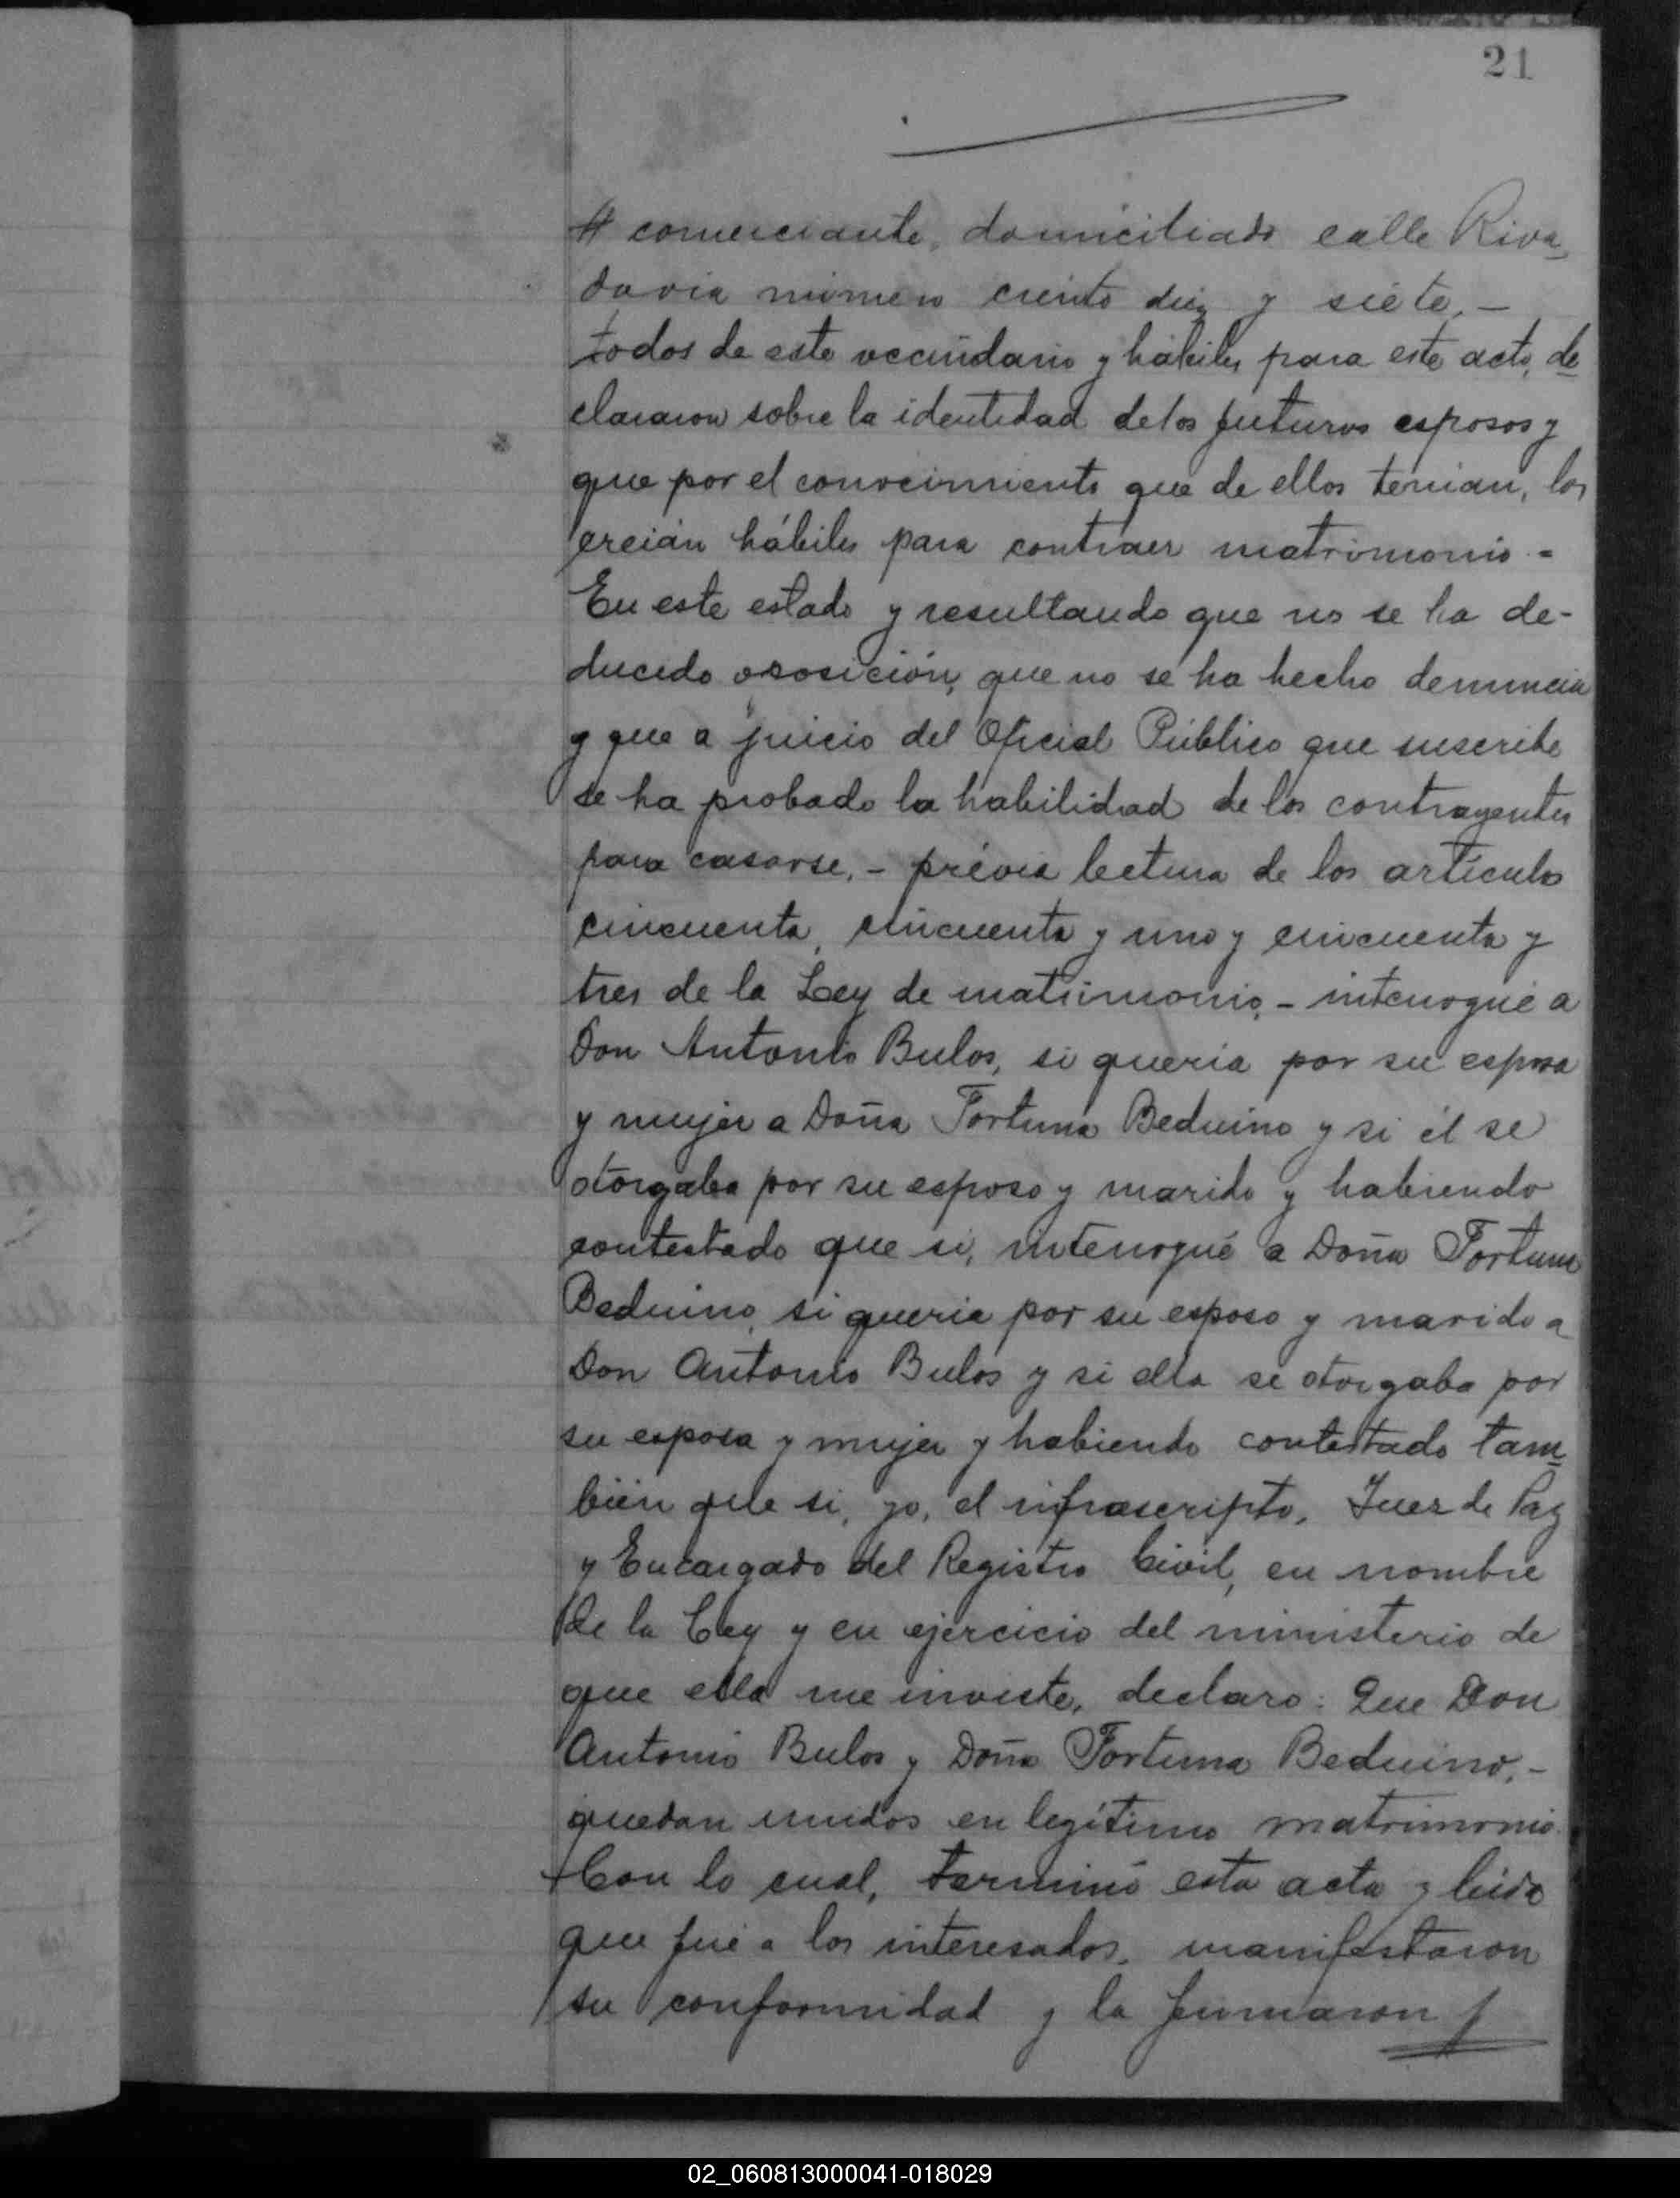 21
# comerciante, domiciliado calle Riva-
davia número ciento diez y siete,-
todos de este vecindario y hábiles para este acto, de-
clararon sobre la identidad de los futuros esposos y
que por el conocimiento que de ellos tenían, los
creían hábiles para contraer matrimonio.-
En este estado y resultando que no se ha de-
ducido oposición, que no se ha hecho denuncia
y que a juicio del Oficial Público que suscribe
se ha probado la habilidad de los contrayentes
para casarse.- prévia lectura de los artículos
cincuenta, cincuenta y uno y cincuenta y
tres de la Ley de matrimonio,- interrogué a
Don Antonio Bulos, si quería por su esposa
y mujer a Doña Fortuna Beduino y si él se
otorgaba por su esposo y marido y habiendo
contestado que si, interrogué a Doña Fortuna
Beduino, si quería por su esposo y marido a
Don Antonio Bulos y si ella se otorgaba por
su esposa y mujer y habiendo contestado tam-
bién que si, yo, el infrascripto, Juez de Paz
y Encargado del Registro Civil, en nombre
de la Ley y en ejercicio del ministerio de
que ella me inviste, declaro: Que Don
Antonio Bulos y Doña Fortuna Beduino,-
quedan unidos en legítimo matrimonio.
Con lo cual, terminó esta acta y leída
que fué a los interesados, manifestaron
su conformidad y la firmaron
02_060813000041-018029